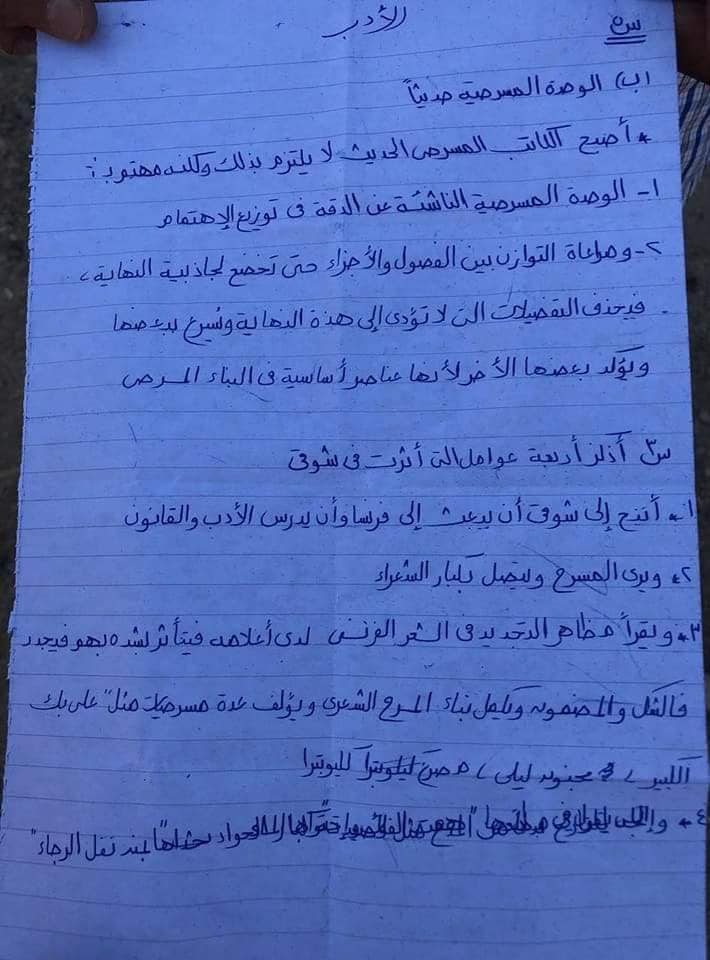 الأدب
س٥
(ب) الوحدة المسرحية حديثاً
* أصبح الكاتب المسرحى الحديث لا يلتزم بذلك ولكنه مهتم بـ :
١- الوحدة المسرحية الناشئة عن الدقة فى توزيع الإهتمام
٢- ومراعاة التوازن بين الفصول والأجزاء حتى تخضع لجاذبية النهاية ،
فيحذف التفصيلات التى لا تؤدى إلى هذة النهاية ويُسرع ببعضها
ويؤكد بعضها الأخر لأنها عناصر أساسية فى البناء المسرحى
س٣ أذكر أربعة عوامل التى أثرت فى شوقى
١* أتيح إلى شوقى أن يبعث إلى فرنسا وأن يدرس الأدب والقانون
٢* ويرى المسرح ويتصل بكبار الشعراء
٣* ويقرأ مظاهر التجديد فى الشعر الفرنسى لدى أعلامه فيتأثر بشده بهو فيجدد
فالشكل والمضمون ويكمل بناء المسرح الشعرى ويؤلف عدة مسرحيات مثل "على بك
الكبير ، مجنون ليلى ، مصرع كليوبترا كليوبترا
٤*